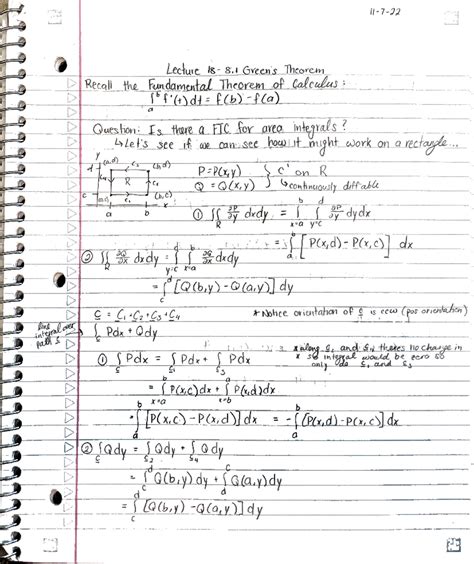 11-7-22
Lecture 18 - 8.1 Green's Theorem
Recall the Fundamental Theorem of Calculus:
∫_a^b f'(t) dt = f(b) - f(a)
Question: Is there a FTC for area integrals?
↳ Let's see if we can see how it might work on a rectangle...
y
d (a,d) C₃ (b,d)
C₄ R C₂
c (b,c)
a b x
P = P(x,y)
Q = Q(x,y) } C' on R
↳ continuously diff'able
① ∬_R ∂P/∂y dxdy = ∫_{x=a}^b ∫_{y=c}^d ∂P/∂y dydx
= ∫_a^b [P(x,d) - P(x,c)] dx
② ∬_R ∂Q/∂x dxdy = ∫_{y=c}^d ∫_{x=a}^b ∂Q/∂x dxdy
= ∫_c^d [Q(b,y) - Q(a,y)] dy
C = C₁ + C₂ + C₃ + C₄ * Notice orientation of C is ccw (pos orientation)
line integral over path C
∫_C Pdx + Qdy
* along C₂ and C₄ theres no change in
x so integral would be zero so
only use C₁ and C₃
① ∫_C Pdx = ∫_{C₁} Pdx + ∫_{C₃} Pdx
= ∫_{x=a}^b P(x,c) dx + ∫_{x=b}^a P(x,d) dx
= ∫_a^b [P(x,c) - P(x,d)] dx = -∫_a^b [P(x,d) - P(x,c)] dx
② ∫_C Qdy = ∫_{C₂} Qdy + ∫_{C₄} Qdy
= ∫_c^d Q(b,y) dy + ∫_d^c Q(a,y) dy
= ∫_c^d [Q(b,y) - Q(a,y)] dy